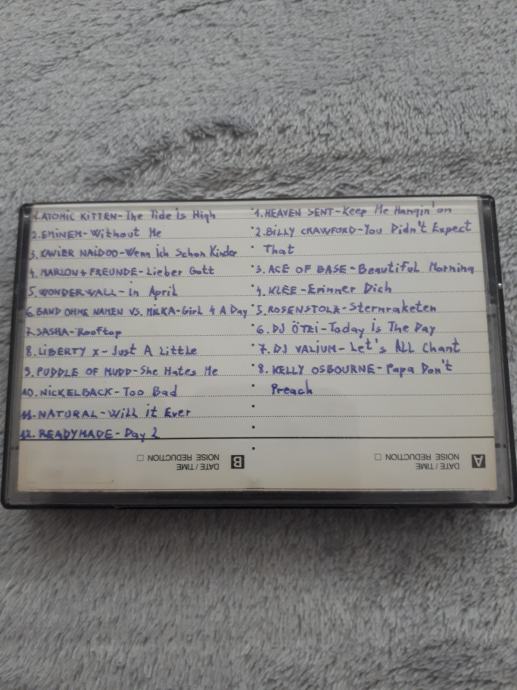 1. ATOMIC KITTEN-The Tide is High
2. EMINEM-Without Me
3. XAVIER NAIDOO-Wenn ich Schon Kinder
4. MARLON + FREUNDE-Lieber Gott
5. WONDERWALL-in April
6. BAND OHNE NAMEN VS. MILKA-Girl 4 A Day
7. SASHA-Rooftop
8. LIBERTY X-Just A Little
9. PUDDLE OF MUDD-She Hates Me
10. NICKELBACK-Too Bad
11. NATURAL-Will it Ever
12. READYMADE-Day 2
1. HEAVEN SENT-Keep Me Hangin' on
2. BILLY CRAWFORD-You Didn't Expect
That
3. ACE OF BASE-Beautiful Morning
4. KLEE-Erinner Dich
5. ROSENSTOLZ-Sternraketen
6. DJ ÖTZI-Today is The Day
7. DJ VALIUM-Let's ALL Chant
8. KELLY OSBOURNE-Papa Don't
Preach
A
DATE / TIME
NOISE REDUCTION
B
DATE / TIME
NOISE REDUCTION